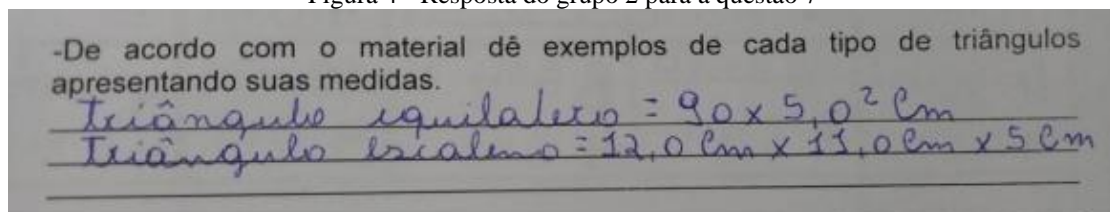 Figura 4 – Resposta do grupo 2 para a questão 7
-De acordo com o material dê exemplos de cada tipo de triângulos
apresentando suas medidas.
Triângulo equilatero = 90 x 5,0² Cm
Triângulo escaleno = 12,0 Cm x 11,0 Cm x 5 Cm